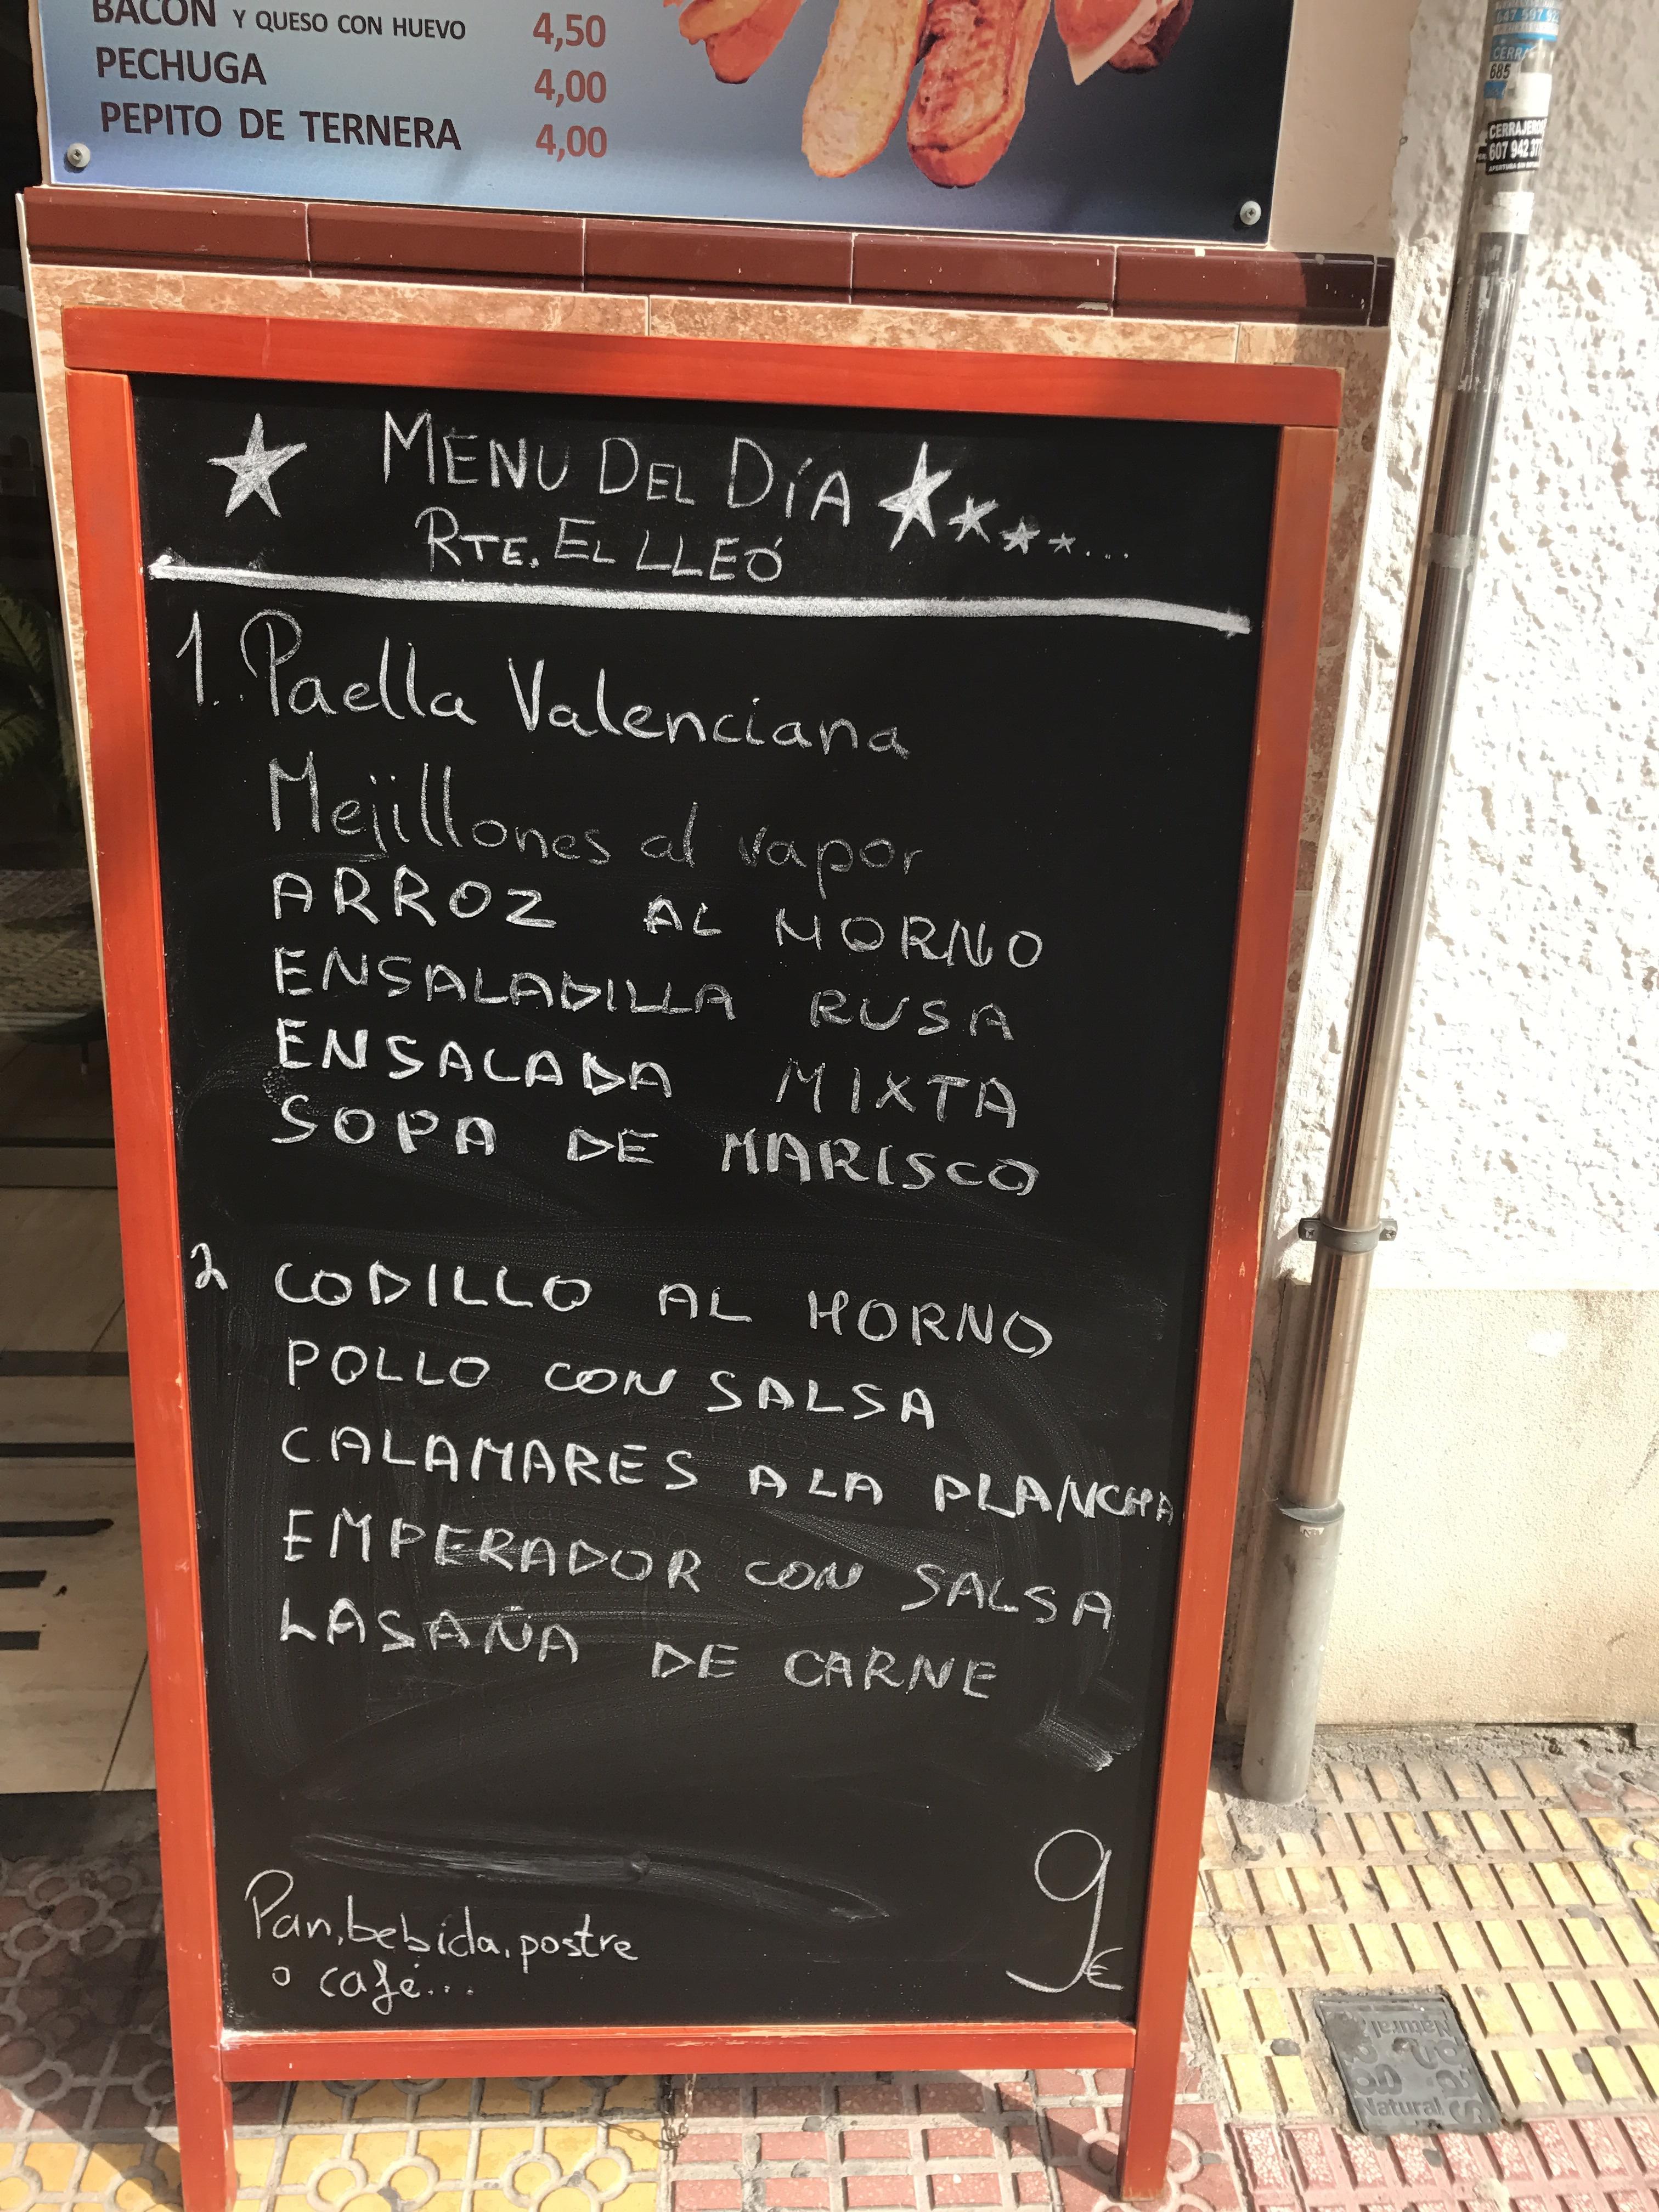 BACON Y QUESO CON HUEVO 4,50
PECHUGA 4,00
PEPITO DE TERNERA 4,00
MENU DEL DíA
RTE. EL LLEÓ
1. Paella Valenciana
Mejillones al vapor
ARROZ AL HORNO
ENSALADILLA RUSA
ENSALADA MIXTA
SOPA DE MARISCO
2 CODILLO AL HORNO
POLLO CON SALSA
CALAMARES A LA PLANCHA
EMPERADOR CON SALSA
LASAÑA DE CARNE
Pan, bebida, postre
o café...
9€
685
CERRAJERO
Natural